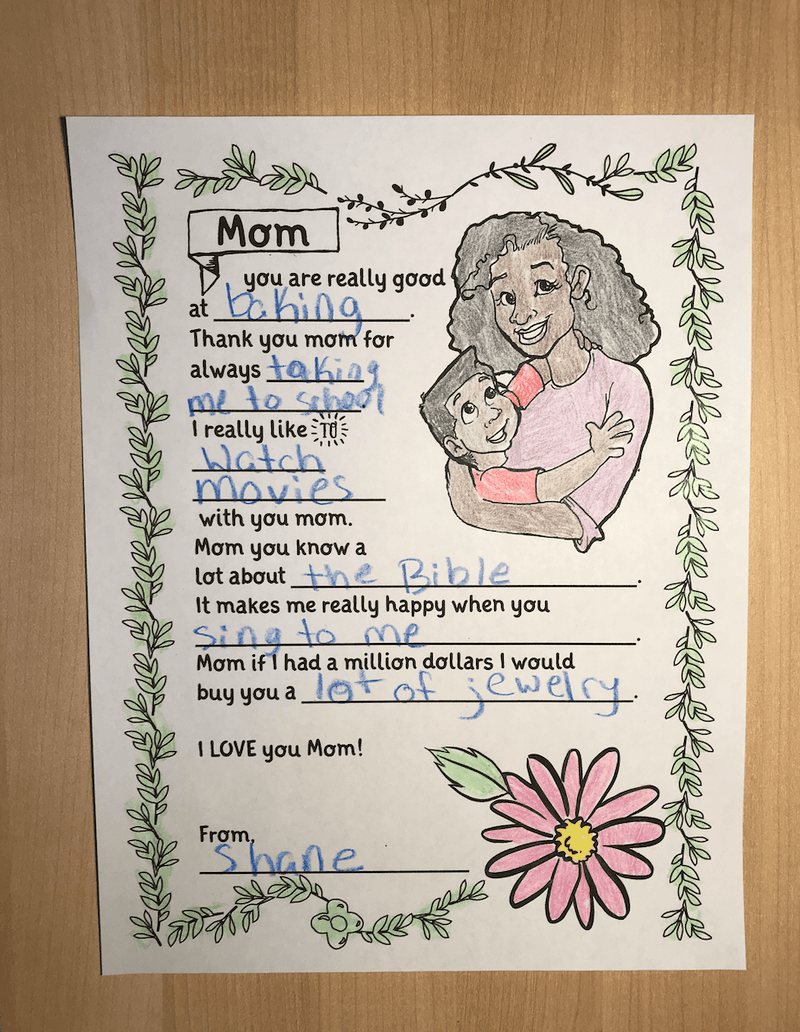 Mom
you are really good
at baking.
Thank you mom for
always taking
me to school
I really like TO
Watch
movies
with you mom.
Mom you know a
lot about the Bible.
It makes me really happy when you
sing to me.
Mom if I had a million dollars I would
buy you a lot of jewelry.
I LOVE you Mom!
From,
Shane